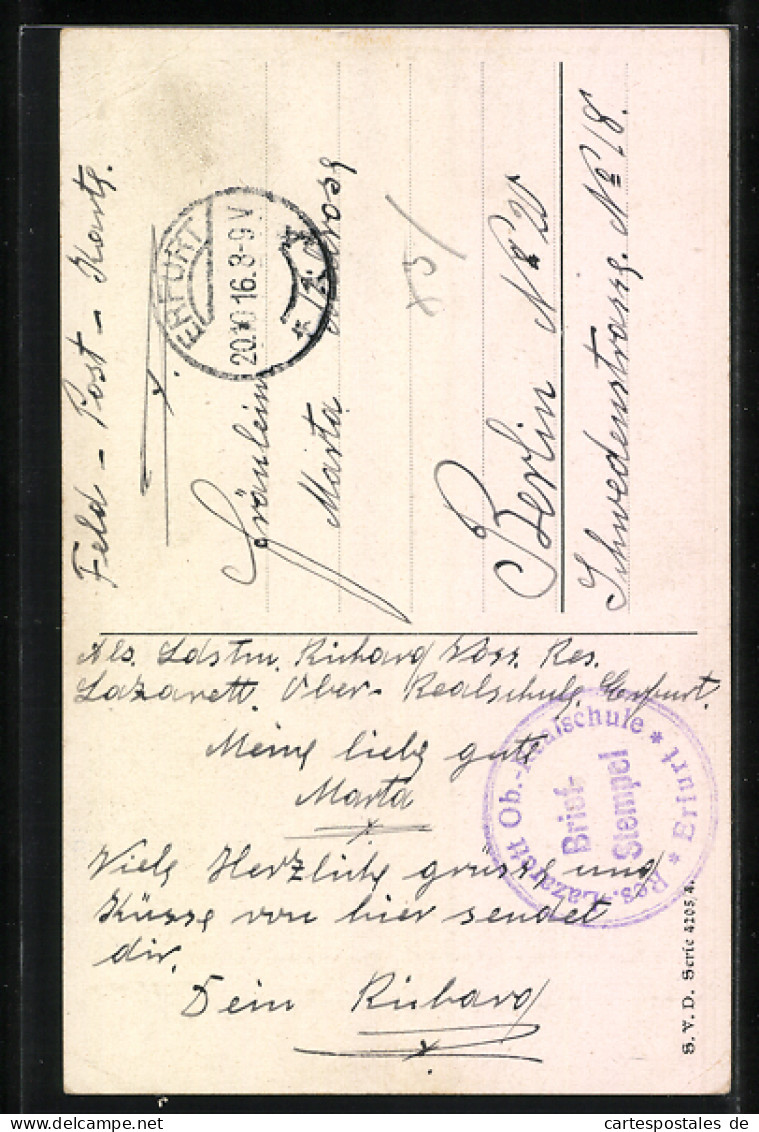 Feld - Post - Karte.
ERFURT
20.10.16.8-9 V
Fräulein
Marta
Berlin No 20
Schwedenstrasse. No 18.
Abs. Ldstm. Richard Voss. Res.
Lazarett. Ober- Realschule, Erfurt.
Meine liebe gute
Marta
Viele Herzliche grüsse und
Küsse von hier sendet
dir.
Dein Richard
Res.-Lazarett Ob.-Realschule * Erfurt *
Brief-
Stempel
S. V. D. Serie 4205/4.
delcampe.net
cartespostales de